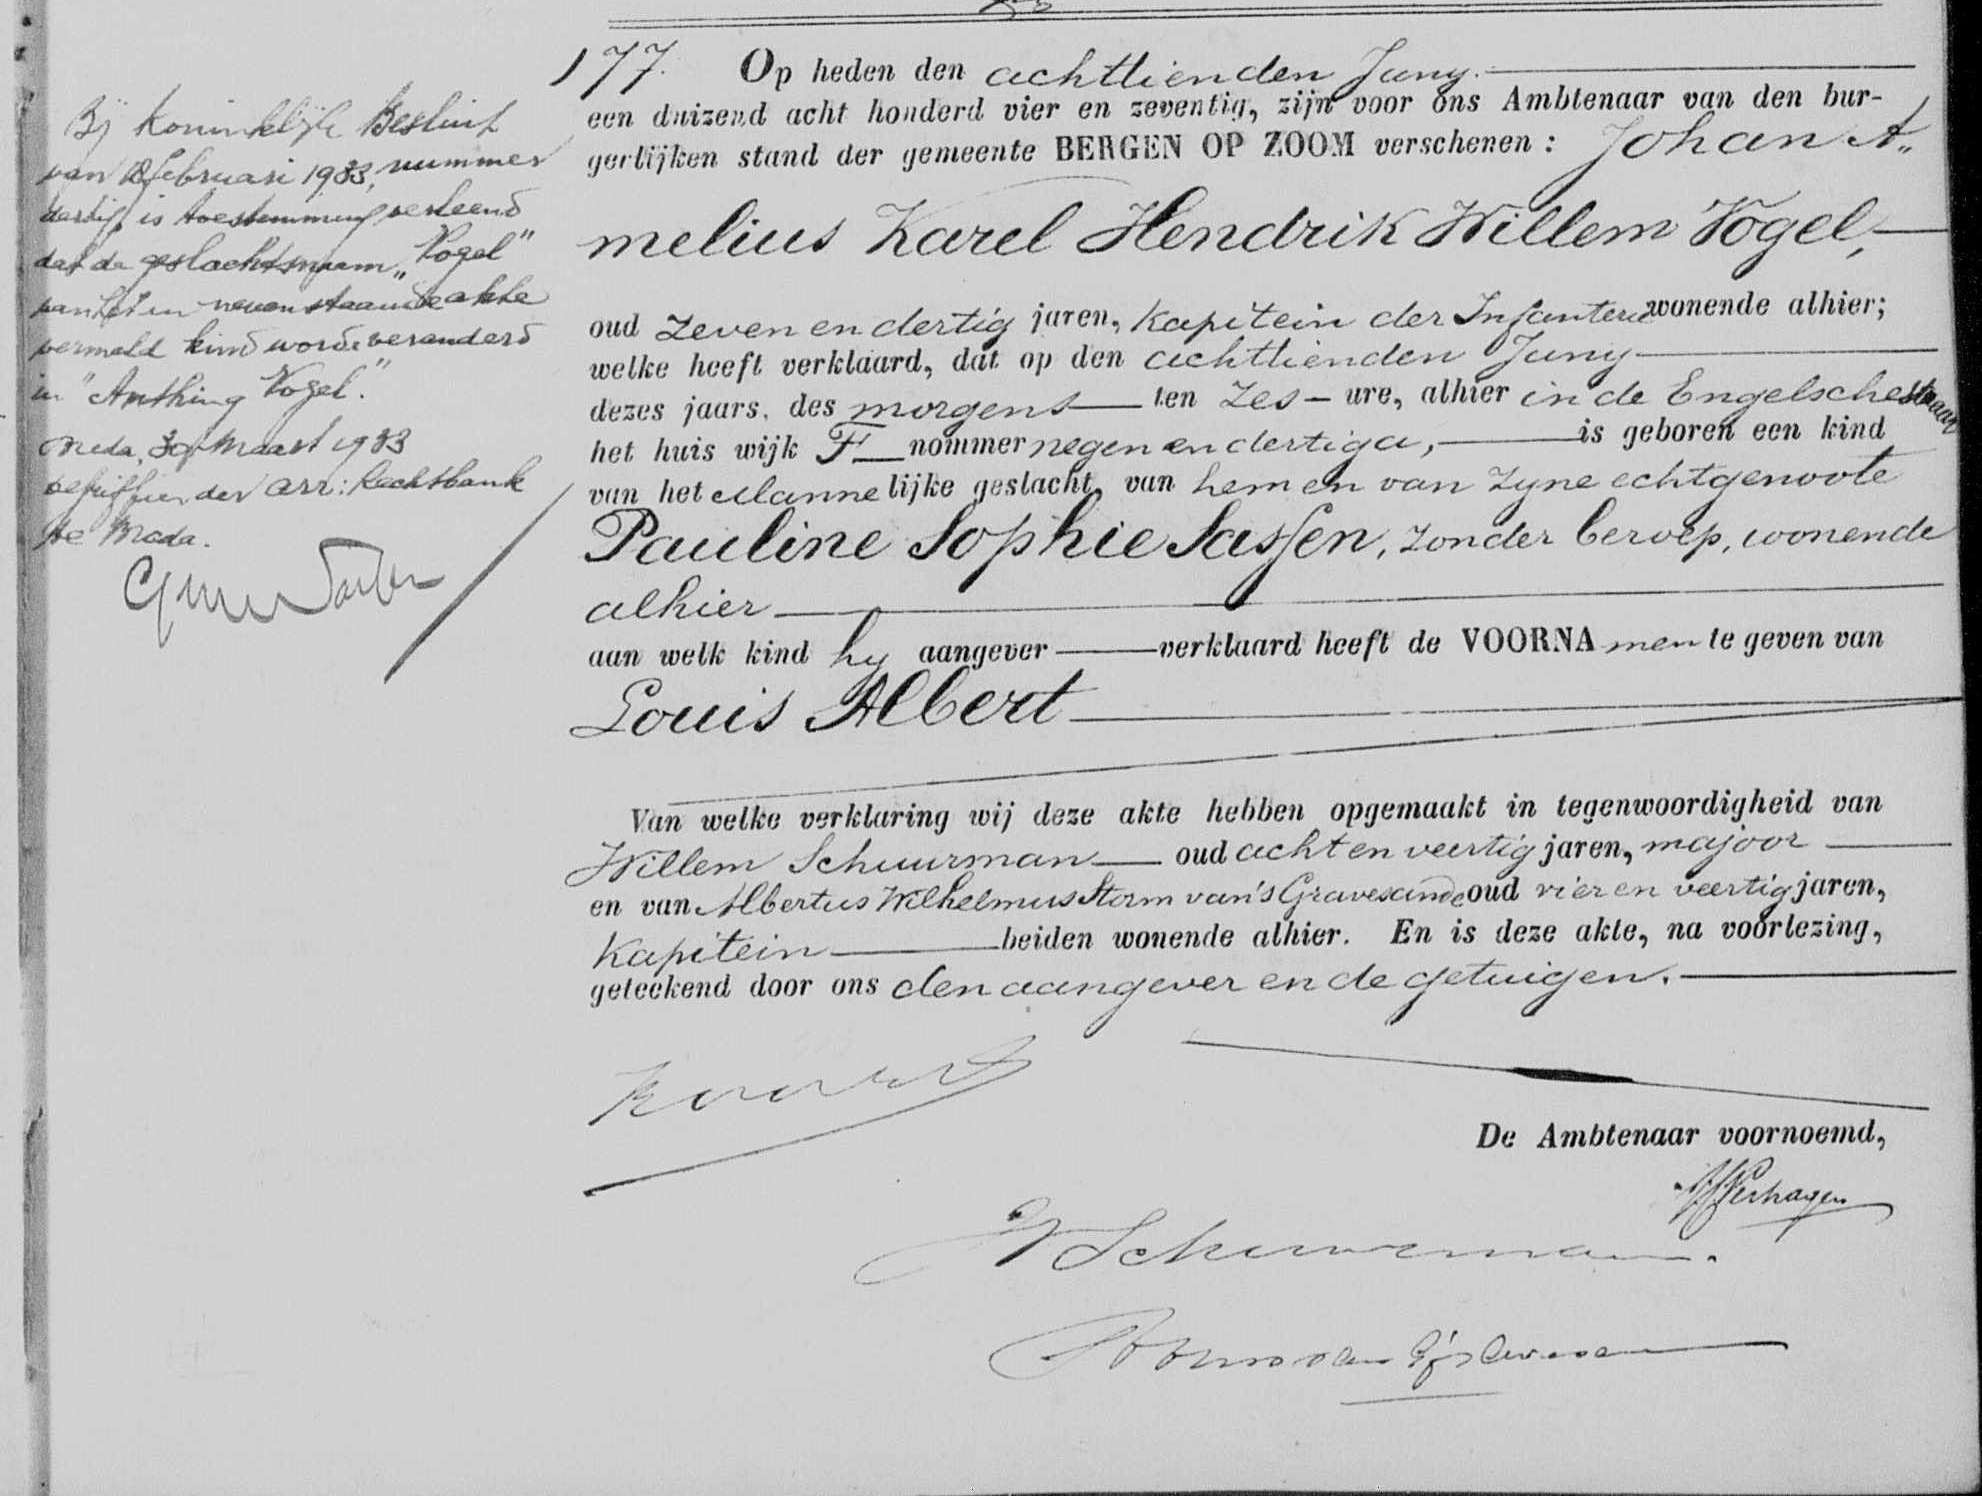 177. Op heden den achttienden Juny.
een duizend acht honderd vier en zeventig, zijn voor ons Ambtenaar van den bur-
gerlijken stand der gemeente BERGEN OP ZOOM verschenen: Johan A„
melius Karel Hendrik Willem Vogel,
oud zeven en dertig jaren, Kapitein der Infanterie wonende alhier;
welke heeft verklaard, dat op den achttienden Juny
dezes jaars, des morgens ten zes ure, alhier in de Engelschestraat
het huis wijk F nommer negen en dertig a, is geboren een kind
van het Mannelijke geslacht, van hem en van zyne echtgenoote
Pauline Sophie Sassen, zonder beroep, wonende
alhier
aan welk kind hy aangever verklaard heeft de VOORNAmen te geven van
Louis Albert
Van welke verklaring wij deze akte hebben opgemaakt in tegenwoordigheid van
Willem Schuurman oud acht en veertig jaren, majoor
en van Albertus Wilhelmus Storm van 's Gravesande oud vier en veertig jaren,
Kapitein beiden wonende alhier. En is deze akte, na voorlezing,
geteekend door ons den aangever en de getuigen.
De Ambtenaar voornoemd,
Verhagen
W Schuurman.
Bij Koninklijk Besluit
van februari 1933, nummer
dertig, is toestemming verleend
dat de geslachtsnaam „Vogel"
van het in nevenstaande akte
vermeld kind worde veranderd
in "Anthing Vogel".
Breda, 30 Maart 1933
de griffier der arr: Rechtbank
te Breda.